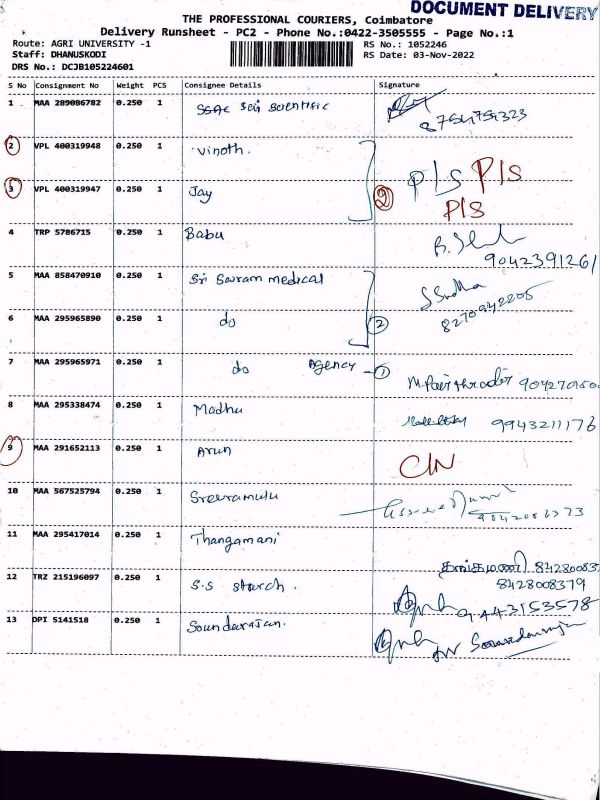 DOCUMENT DELIVERY
THE PROFESSIONAL COURIERS, Coimbatore
Delivery Runsheet - PC2 - Phone No.:0422-3505555 - Page No.:1
Route: AGRI UNIVERSITY -1 RS No.: 1052246
Staff: DHANUSKODI RS Date: 03-Nov-2022
DRS No.: DCJB105224601
S No Consignment No Weight PCS Consignee Details Signature
1 MAA 289086782 0.250 1 Sri Scientific
8754754323
2 VPL 400319948 0.250 1 Vinoth.
P/S P/S
3 VPL 400319947 0.250 1 Jay 2
P/S
4 TRP 5786715 0.250 1 Babu
9042391261
5 MAA 858470910 0.250 1 Sri Sairam medical S Sudha
8270942205
6 MAA 295965890 0.250 1 do 2
7 MAA 295965971 0.250 1 do Agency - 1
904270150
8 MAA 295338474 0.250 1 Madhu 9943211176
9 MAA 291652113 0.250 1 Arun
C/N
10 MAA 567525794 0.250 1 Sreeramulu
11 MAA 295417014 0.250 1 Thangamani
84280083
12 TRZ 215196097 0.250 1 S.S starch. 8428008379
9443153578
13 DPI 5141518 0.250 1 Soundarajan.